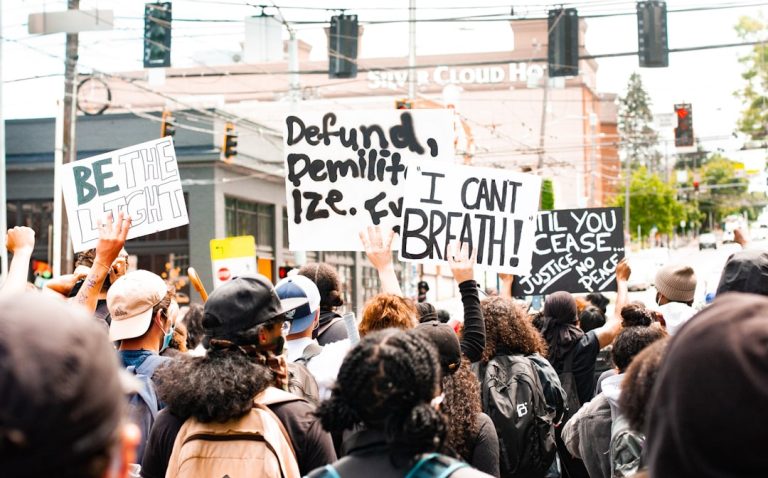 SILVER CLOUD HO
BE THE
LIGHT
Defund,
Demilit
ize.
"I CANT
BREATH!"
TIL YOU
CEASE...
JUSTICE NO
PEACE